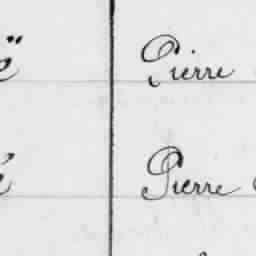 Pierre
Pierre